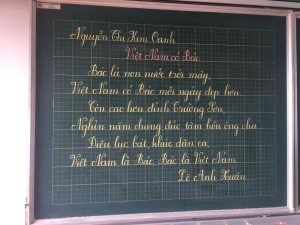 Nguyễn Thị Kim Oanh
Việt Nam có Bác
Bác là non nước trời mây,
Việt Nam có Bác mỗi ngày đẹp hơn.
Còn cao hơn đỉnh Trường Sơn,
Nghìn năm chung đúc tâm hồn ông cha.
Điệu lục bát, khúc dân ca,
Việt Nam là Bác, Bác là Việt Nam.
Lê Anh Xuân